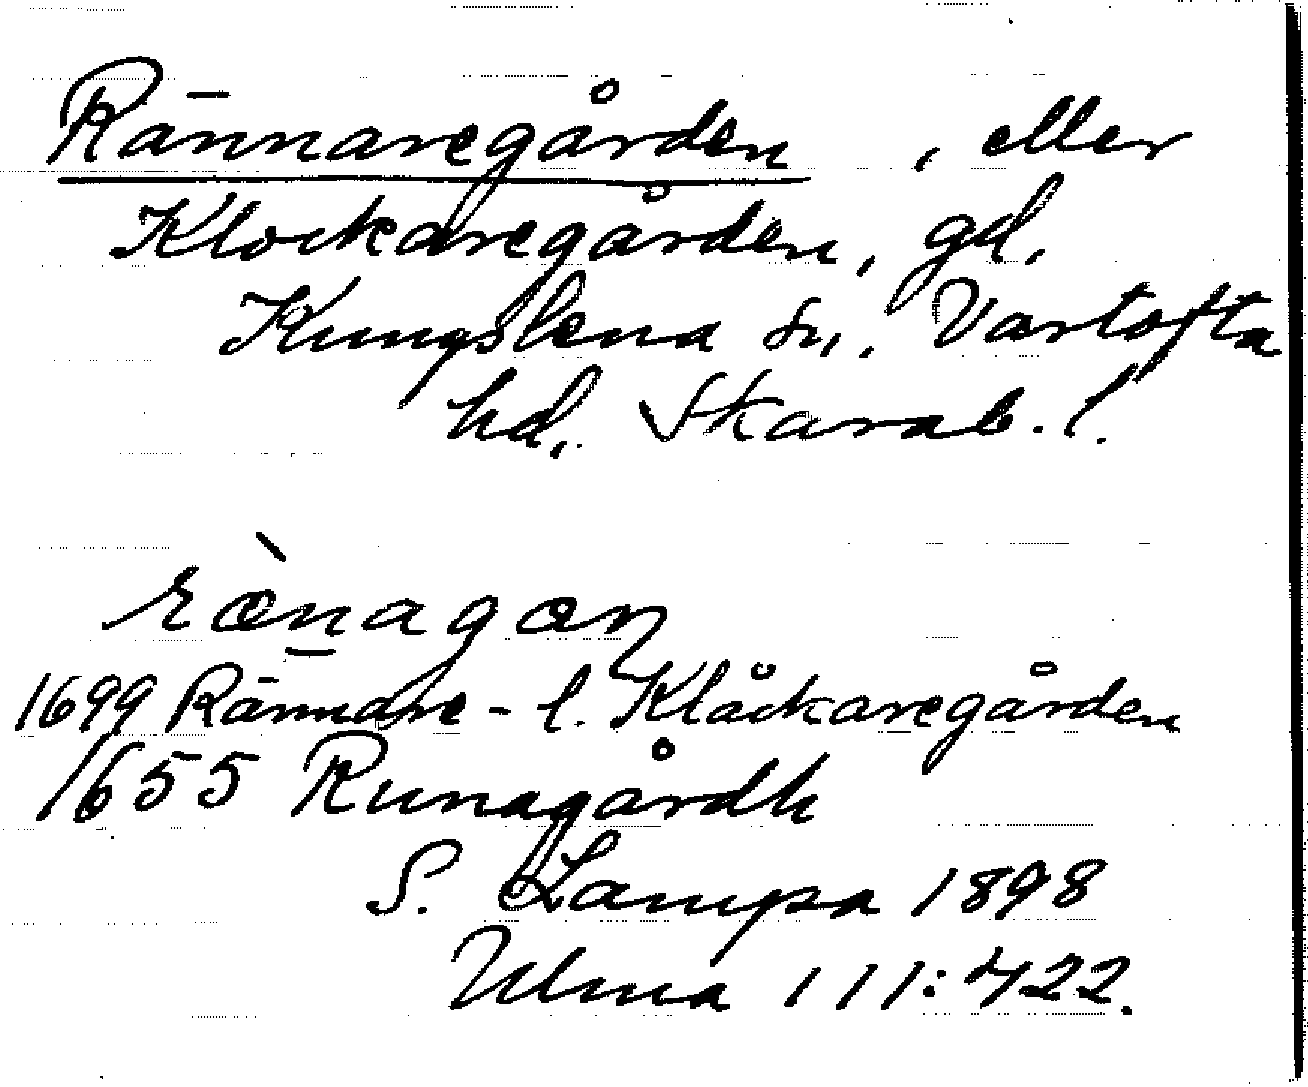 Rännaregården, eller
Klockaregården, gd.
Kungslena sn, Vartofta
hd. Skarab. l.
rænagaŋ
1699 Rännare- l. Klåckaregården
1655 Runagårdh
S. Lampa 1898
Ulma 111:422.